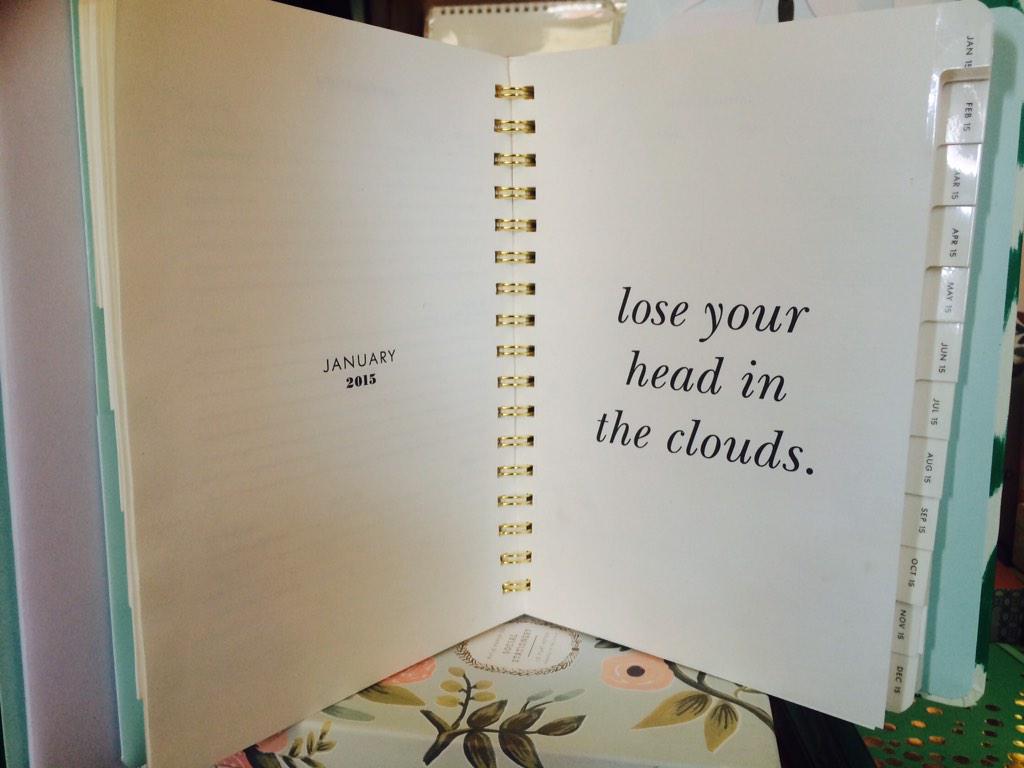 JANUARY
2015
lose your
head in
the clouds.
JAN 15
FEB 15
MAR 15
APR 15
MAY 15
JUN 15
JUL 15
AUG 15
SEP 15
OCT 15
NOV 15
DEC 15
SOCIAL
STATIONERY